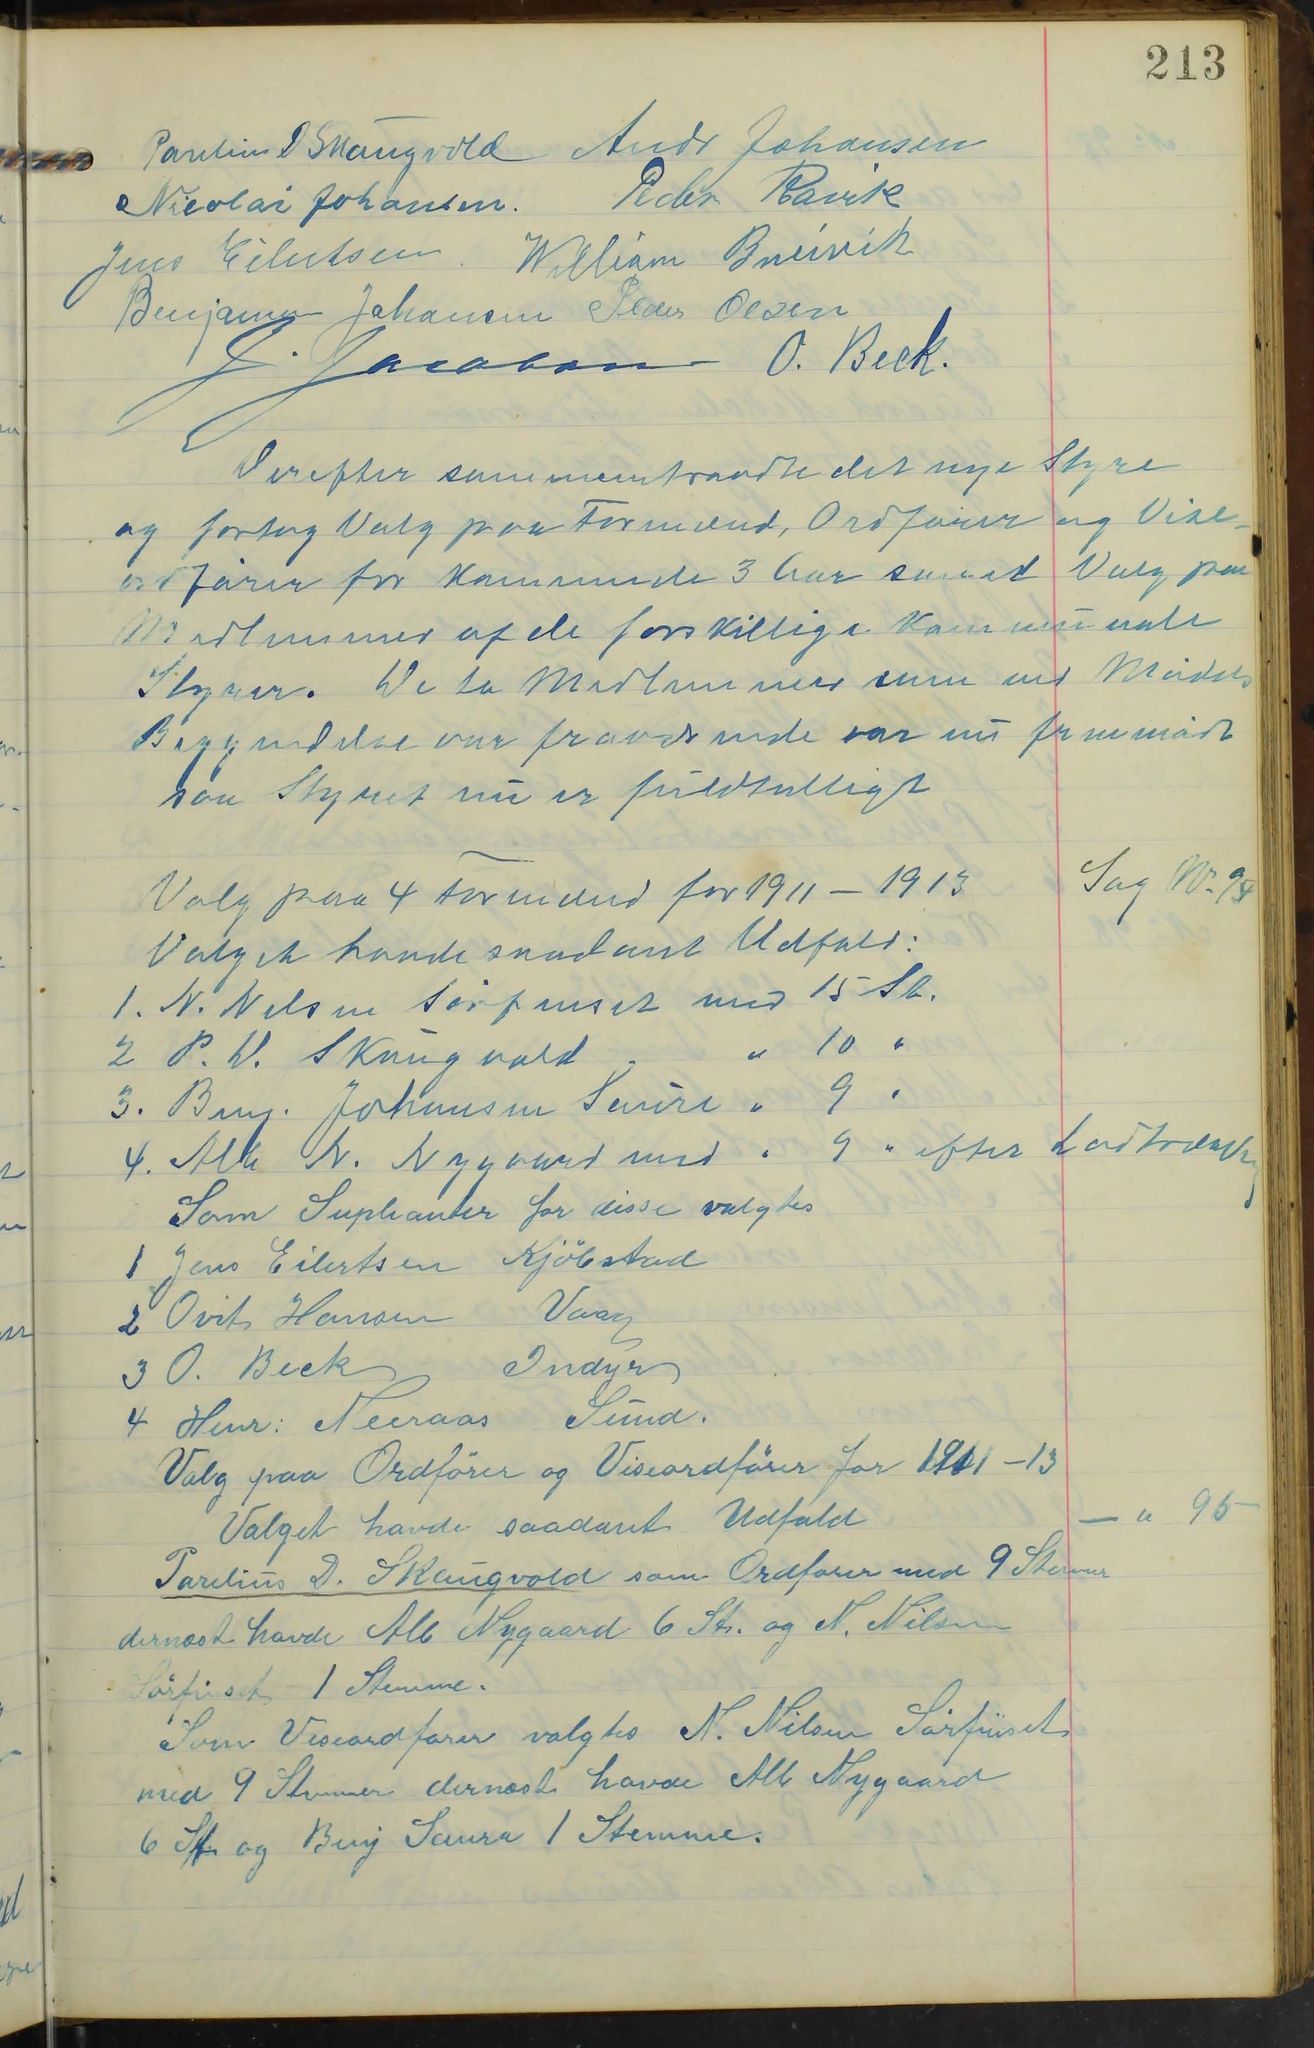 213
Parelius D Skaugvold Andr Johansen
Nicolai Johansen. Peder Ravik
Jens Eilertsen. William Breivik
Benjamin Johansen Peder Olsen
J. Jacobsen O. Beck.
Derefter sammentraadte det nye Styre
og fortog Valg paa Formænd, Ordfører og Vise-
ordfører for kommende 3 Aar samt Valg paa
Medlemmer af de forskillige Kommunale
Styrer. De to Medlemmer som ved Mødets
Begyndelse var fraværende var nu fremmødt
saa Styret nu er fuldtalligt
Valg paa 4 Formænd for 1911 - 1913 Sag Nr. 94
Valget havde saadant Udfald:
1. N. Nilsen Sørfinset med 15 St.
2 P. D. Skaugvold " 10 "
3. Benj. Johansen Saura " 9 "
4. Alb N. Nygaard med " 9 " efter Lodtrækng
Som Suplianter for disse valgtes
1 Jens Eilertsen Kjøbstad
2 Ovit Hansen Vaag
3 O. Beck Indyr
4 Henr: Neeraas Sund.
Valg paa Ordfører og Viseordfører for 1911 - 13
Valget havde saadant Udfald — " 95
Parelius D. Skaugvold som Ordfører med 9 Stemmer
dernæst havde Alb Nygaard 6 St. og N. Nilsen
Sørfinset 1 Stemme.
Som Viseordfører valgtes N. Nilsen Sørfinset
med 9 Stemmer dernæst havde Alb Nygaard
6 St og Benj Saura 1 Stemme.